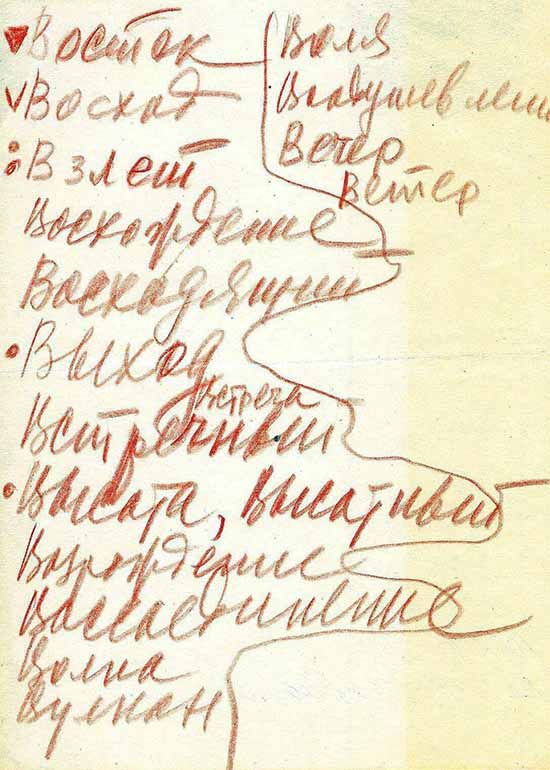 Восток
Восход
Взлет
Восхождение
Восходящий
Выход
Встреча
Встречный
Высота, Высотный
Возрождение
Воссоединение
Волна
Вулкан
Воля
Воодушевлени
Вечер
Ветер